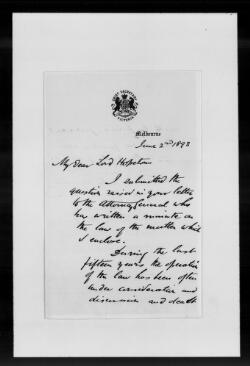 Melbourne
June 2nd 1893
My Dear Lord Hopetoun
I submitted the
question raised in your letter
to the Attorney General who
has written a minute on
the law of the matter which
I enclose.
During the last
fifteen years the operation
of the law has been often
under consideration and
discussion and death